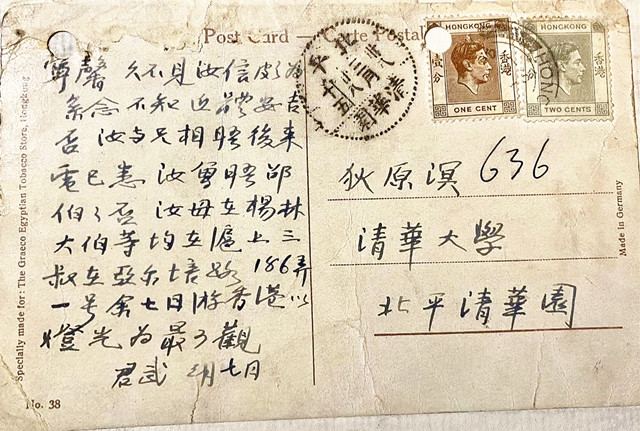 Post Card — Carte Postale
HONGKONG
香港
壹分
ONE CENT
HONGKONG
香港
TWO CENTS
HON
北平
清華園
寧馨 久不見汝信頗為
系念不知近體安吉
否 汝与兄相晤後来
電已悉 汝曾晤邵
伯伯否 汝母在楊林
大伯等均在滬上三
叔在亞尔培路186弄
一号余七日游香港以
燈光为最可觀
君武 月七日
狄原溟 636
清華大學
北平清華園
Specially made for: The Graeco Egyptian Tobacco Store, Hongkong
Made in Germany
No. 38